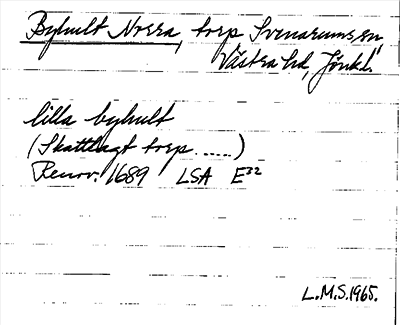 Byhult Norra, torp Svenarums sn
Västra hd, Jönk.l.
lilla byhult
(Skattlagt torp. .....)
Renov. 1689 LSA E32
L.M.S. 1965.